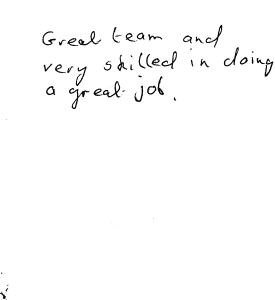 Great team and
very skilled in doing
a great job.